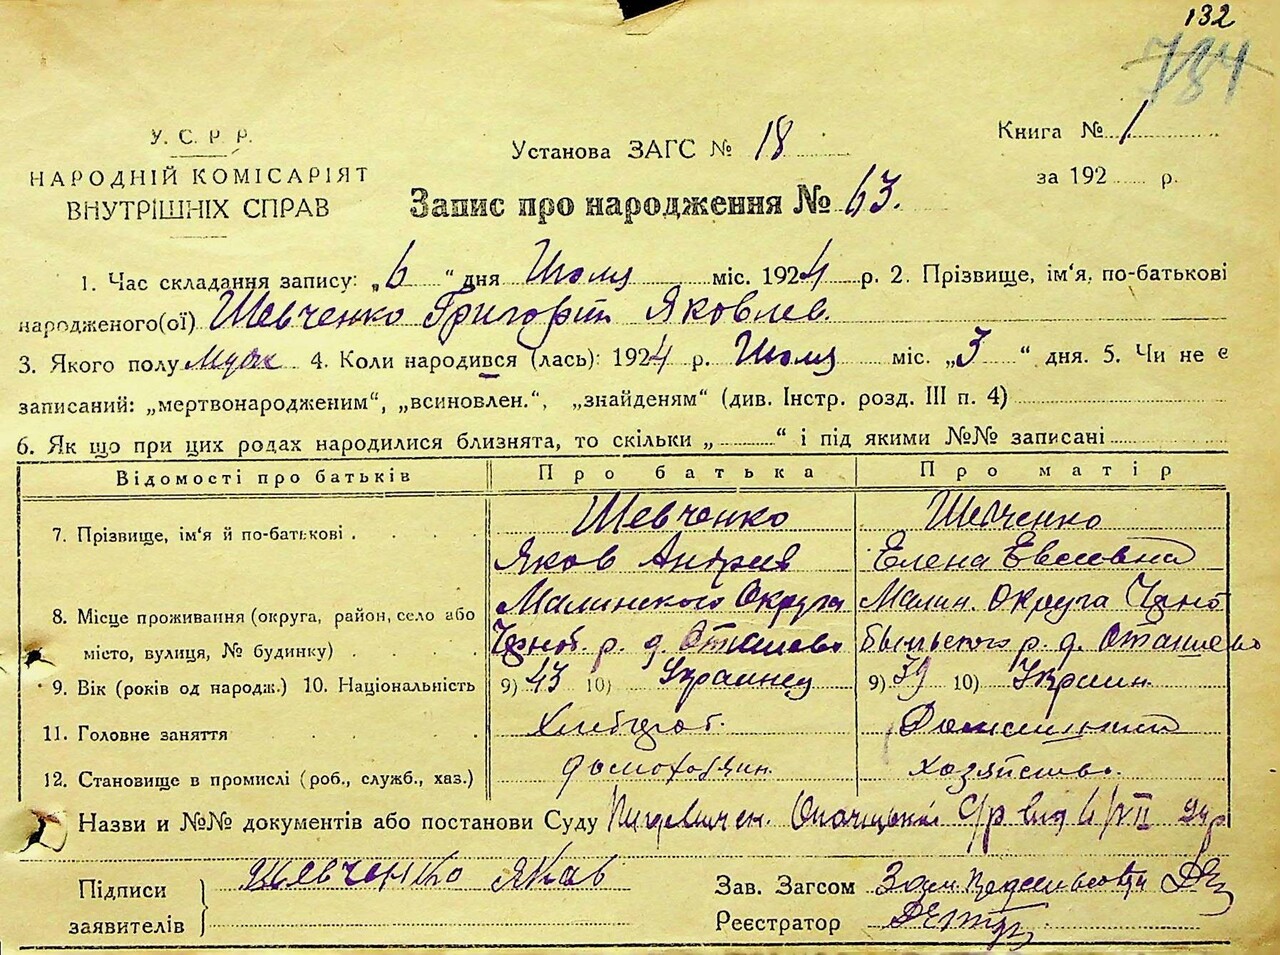 132
784
У. С. Р. Р.
НАРОДНІЙ КОМІСАРІЯТ
ВНУТРІШНІХ СПРАВ
Установа ЗАГС № 18
Книга № 1
за 192 р.
Запис про народження № 63.
1. Час складання запису: „6“ дня Июля міс. 1924 р. 2. Прізвище, ім'я, по-батькові
народженого(ої) Шевченко Григорий Яковлев.
3. Якого полу Муж 4. Коли народився (лась): 1924 р. Июля міс. „3“ дня. 5. Чи не є
записаний: „мертвонародженим“, „всиновлен.“, „знайденям“ (див. Інстр. розд. III п. 4)
6. Як що при цих родах народилися близнята, то скільки „ “ і під якими №№ записані
Відомості про батьків Про батька Про матір
7. Прізвище, ім'я й по-батькові Шевченко Шевченко
Яков Андреев Елена Евсеевна
8. Місце проживання (округа, район, село або Малинского Округа Малин. Округа Черно
місто, вулиця, № будинку) Черноб. р. д. Оташево быльского р. д. Оташево
9. Вік (років од народж.) 10. Національність 9) 43 10) Украинец 9) 39 10) Украин.
11. Головне заняття Хлебороб. Домашнее
12. Становище в промислі (роб., служб., хаз.) домохозяин. хозяйство.
Назви и №№ документів або постанови Суду С/р від 6/VII 24 р
Підписи
заявителів
Шевченко Яков
Зав. Загсом
Реєстратор